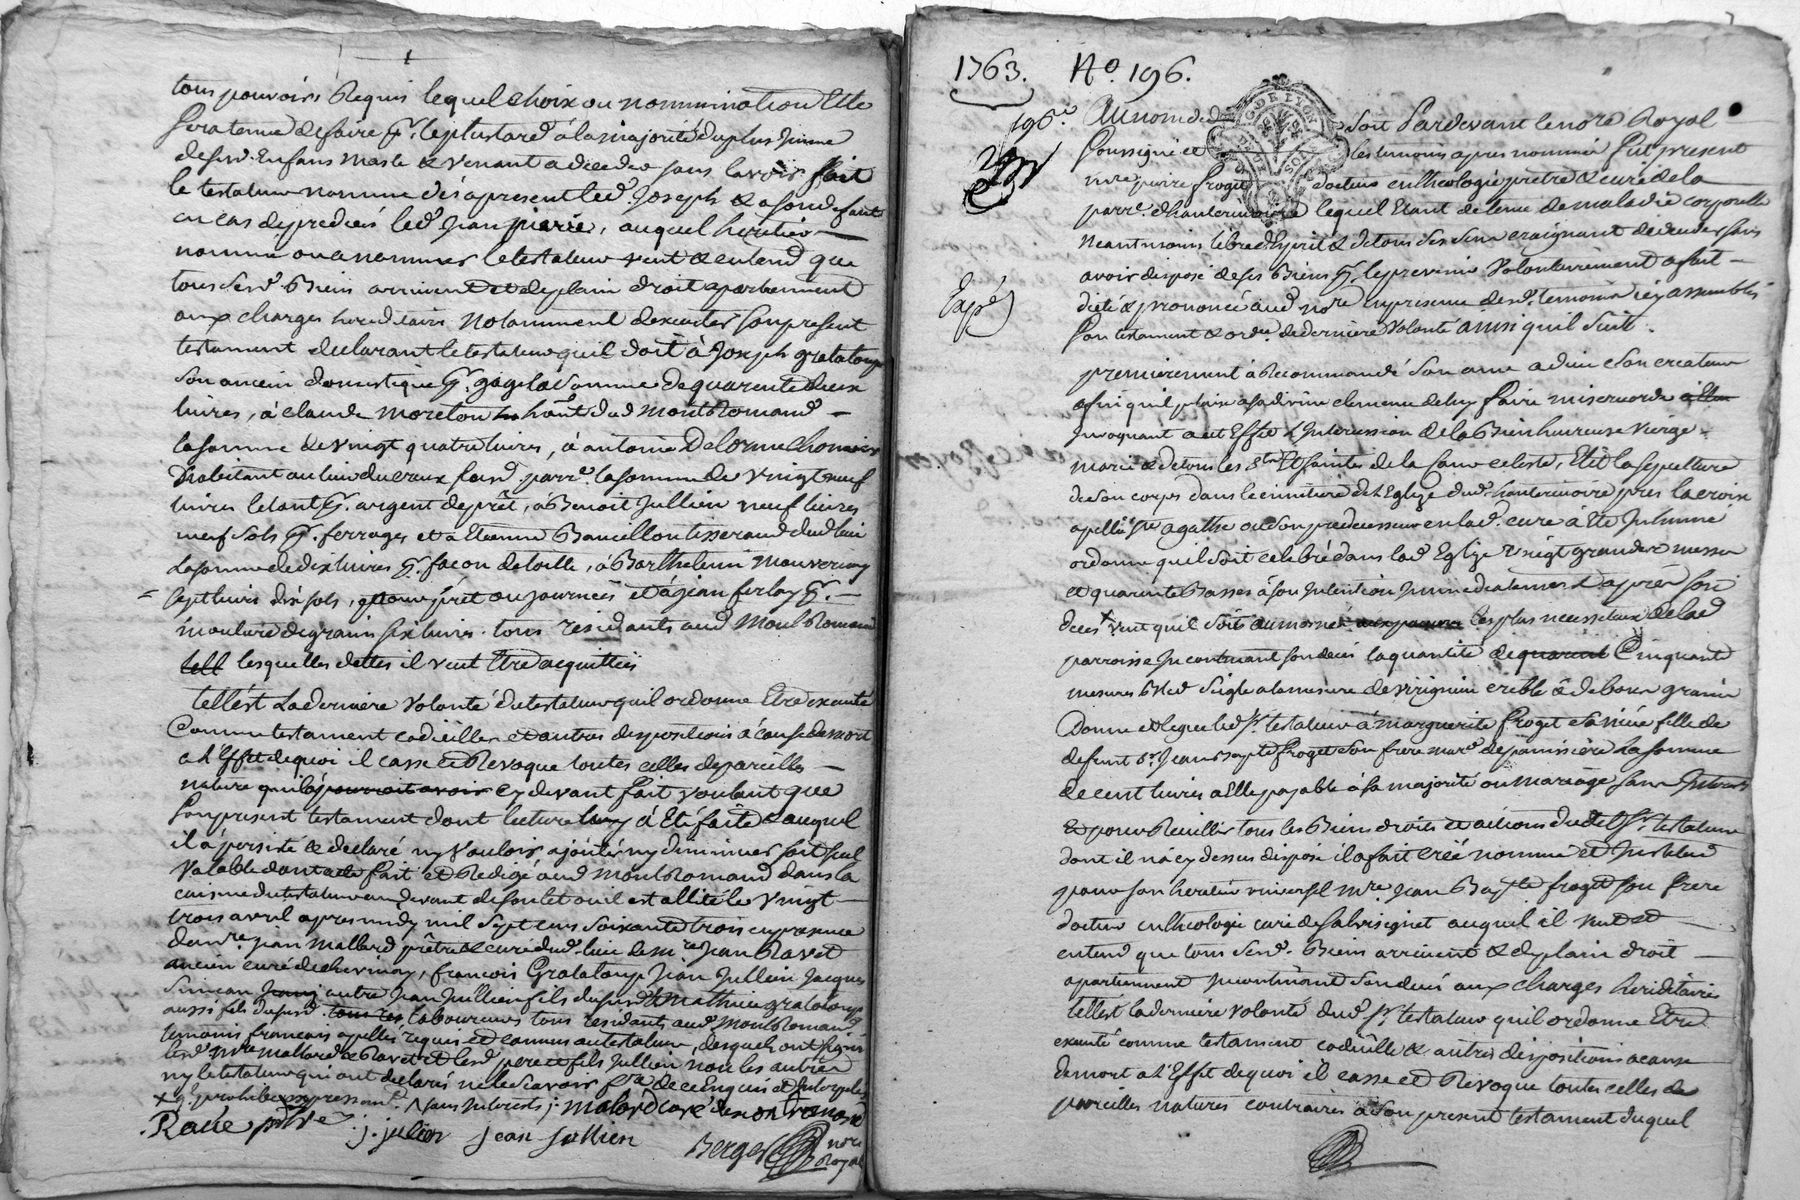 tous pouvoirs Requis lequel choix ou nommination Elle
sera tenue de faire p. le plus tard à la majorité du plus Jeune
desd. Enfans masle & venant a deceder sans l'avoir fait
le testateur nomme dès apresent led. Joseph & a son deffaut
ou cas de predecés led. Jean pierre, auquel heritier
nommé ou a nommer le testateur veut & entend que
tous sesd. Biens arrivent et de plain droit apartiennent
aux charges hereditaires notamment dexecuter son present
testament declarant le testateur quil doit à Joseph grataloup
son ancien domestique p. gage la somme de quarente deux
livres, à claude moreton dud montRomand
la somme de vingt quatre livres, à antoine Delorme
habitant au lieu du creux susd. parr.e la somme de vingt neuf
livres le tout p. argent de prêt, a Benoit Jullien neuf livres
neuf sols p. ferrages et à Etienne Bancillon tisserand dud lieu
la somme de dix livres p. façon de toille, à Barthelemi
sept livres dix sols, p. prêt ou journées et à jean ferlay p.
mouture de grains six livres. tous residants aud MontRomand
tell lesquelles dettes il veut Etre acquittées
tell'ést La derniere volonté du testateur quil ordonne Etre executé
Comme testament codicille et autres dispositions à cause de mort
a l'Effet de quoi il casse et Revoque toutes celles de pareilles
nature quil pourroit avoir cy devant fait voulant que
son present testament dont lecture luy à Eté faite & auquel
il à persisté & declaré ny vouloir ajoûter ny diminuer soit seul
valable dont acte fait et Redigé aud MontRomand dans la
cuisine du testateur au devant de son lit ou il est allité le vingt
trois avril apres midy mil sept cens soixante trois en presence
de m.re jean Mallard prêtre & curé dud. lieu de m.re Jean Ravet
ancien curé de chevinay, françois Grataloup Jean Jullien Jacques
autre Jean Jullien fils dususd & mathieu grataloup
aussi fils dususd. tous laboureurs tous residants aud. MontRomand
temoins françois apellés requis et connus au testateur, desquels ont signé
lesd. m.re mallard & Ravet et lesd pere et fils Jullien non les autres
ny le testateur qui ont declarés ne le sçavoir faire de ce Enquis et Interpelés
/ sans Interests / malard curé de mon romand
Ravé ptbre j. julien jean jullien
Berger no.re Royal
1763. N.o 196.
196.e
Au nom de dieu soit Pardevant le no.re Royal
soussigné et les temoins apres nommés fut present
m.re pierre froget docteur en theologie prêtre & curé de la
parr.e d'hauterivoire lequel Etant detenu de maladie corporelle
neantmoins libre d'Esprit & de tous ses sens craignant deceder sans
avoir disposé de ses Biens p. le prevenir volontairement a fait
Expé
dicté & prononcé aud no.re en presence desd. temoins icy assemblés
son testament & ord.e de derniere volonté ainsi quil suit.
premierement à Recommandé son ame a dieu son createur
afin qu'il plaise a sa divine clemence de luy faire misericorde
Invoquant a cet Effet l'Intercession de la Bienheureuse vierge
marie & de tous les S.ts Et saintes de la Cour celeste, Elit la sepulture
de son corps dans le cimitiere de l'Eglize dud. hauterivoire près la croix
apellée S.te agathe ou son predecesseur en lad. cure à Eté Inhumé
ordonne quil soit celebré dans lad Eglize vingt grandes messes
et quarente Basses à son Intention Immediatement après son
deces veut quil soit aumoné aux pauvres les plus necessiteux de lad
parroisse Incontinant son deces la quantité de quarente Cinquante
mesures bled seigle a la mesure de virignieu crible & de bons grains
Donne et legue led S.r testateur à marguerite froget sa niéce fille de
defunt S.r Jean Baptiste froget son frere mar.d de panissiere La somme
de cent livres a Elle payable à sa majorité ou mariage sans Interests
Et pour Recuillir tous les Biens droits et actions dudit S.r testateur
dont il n'a cy dessus disposé il a fait créé nommé et Institué
pour son heritier universel m.re Jean Bap.te froget son frere
docteur en theologie curé de salvisignet auquel il veut et
entend que tous sesd. Biens arrivent & de plain droit
apartiennent Incontinant son decés aux charges hereditaires
tell'est la derniere volonté dud S.r testateur quil ordonne Etre
executé comme testament codicille & autres dispositions a cause
de mort a l'Effet de quoi il casse et Revoque toutes celles de
pareilles natures contraires à son present testament duquel